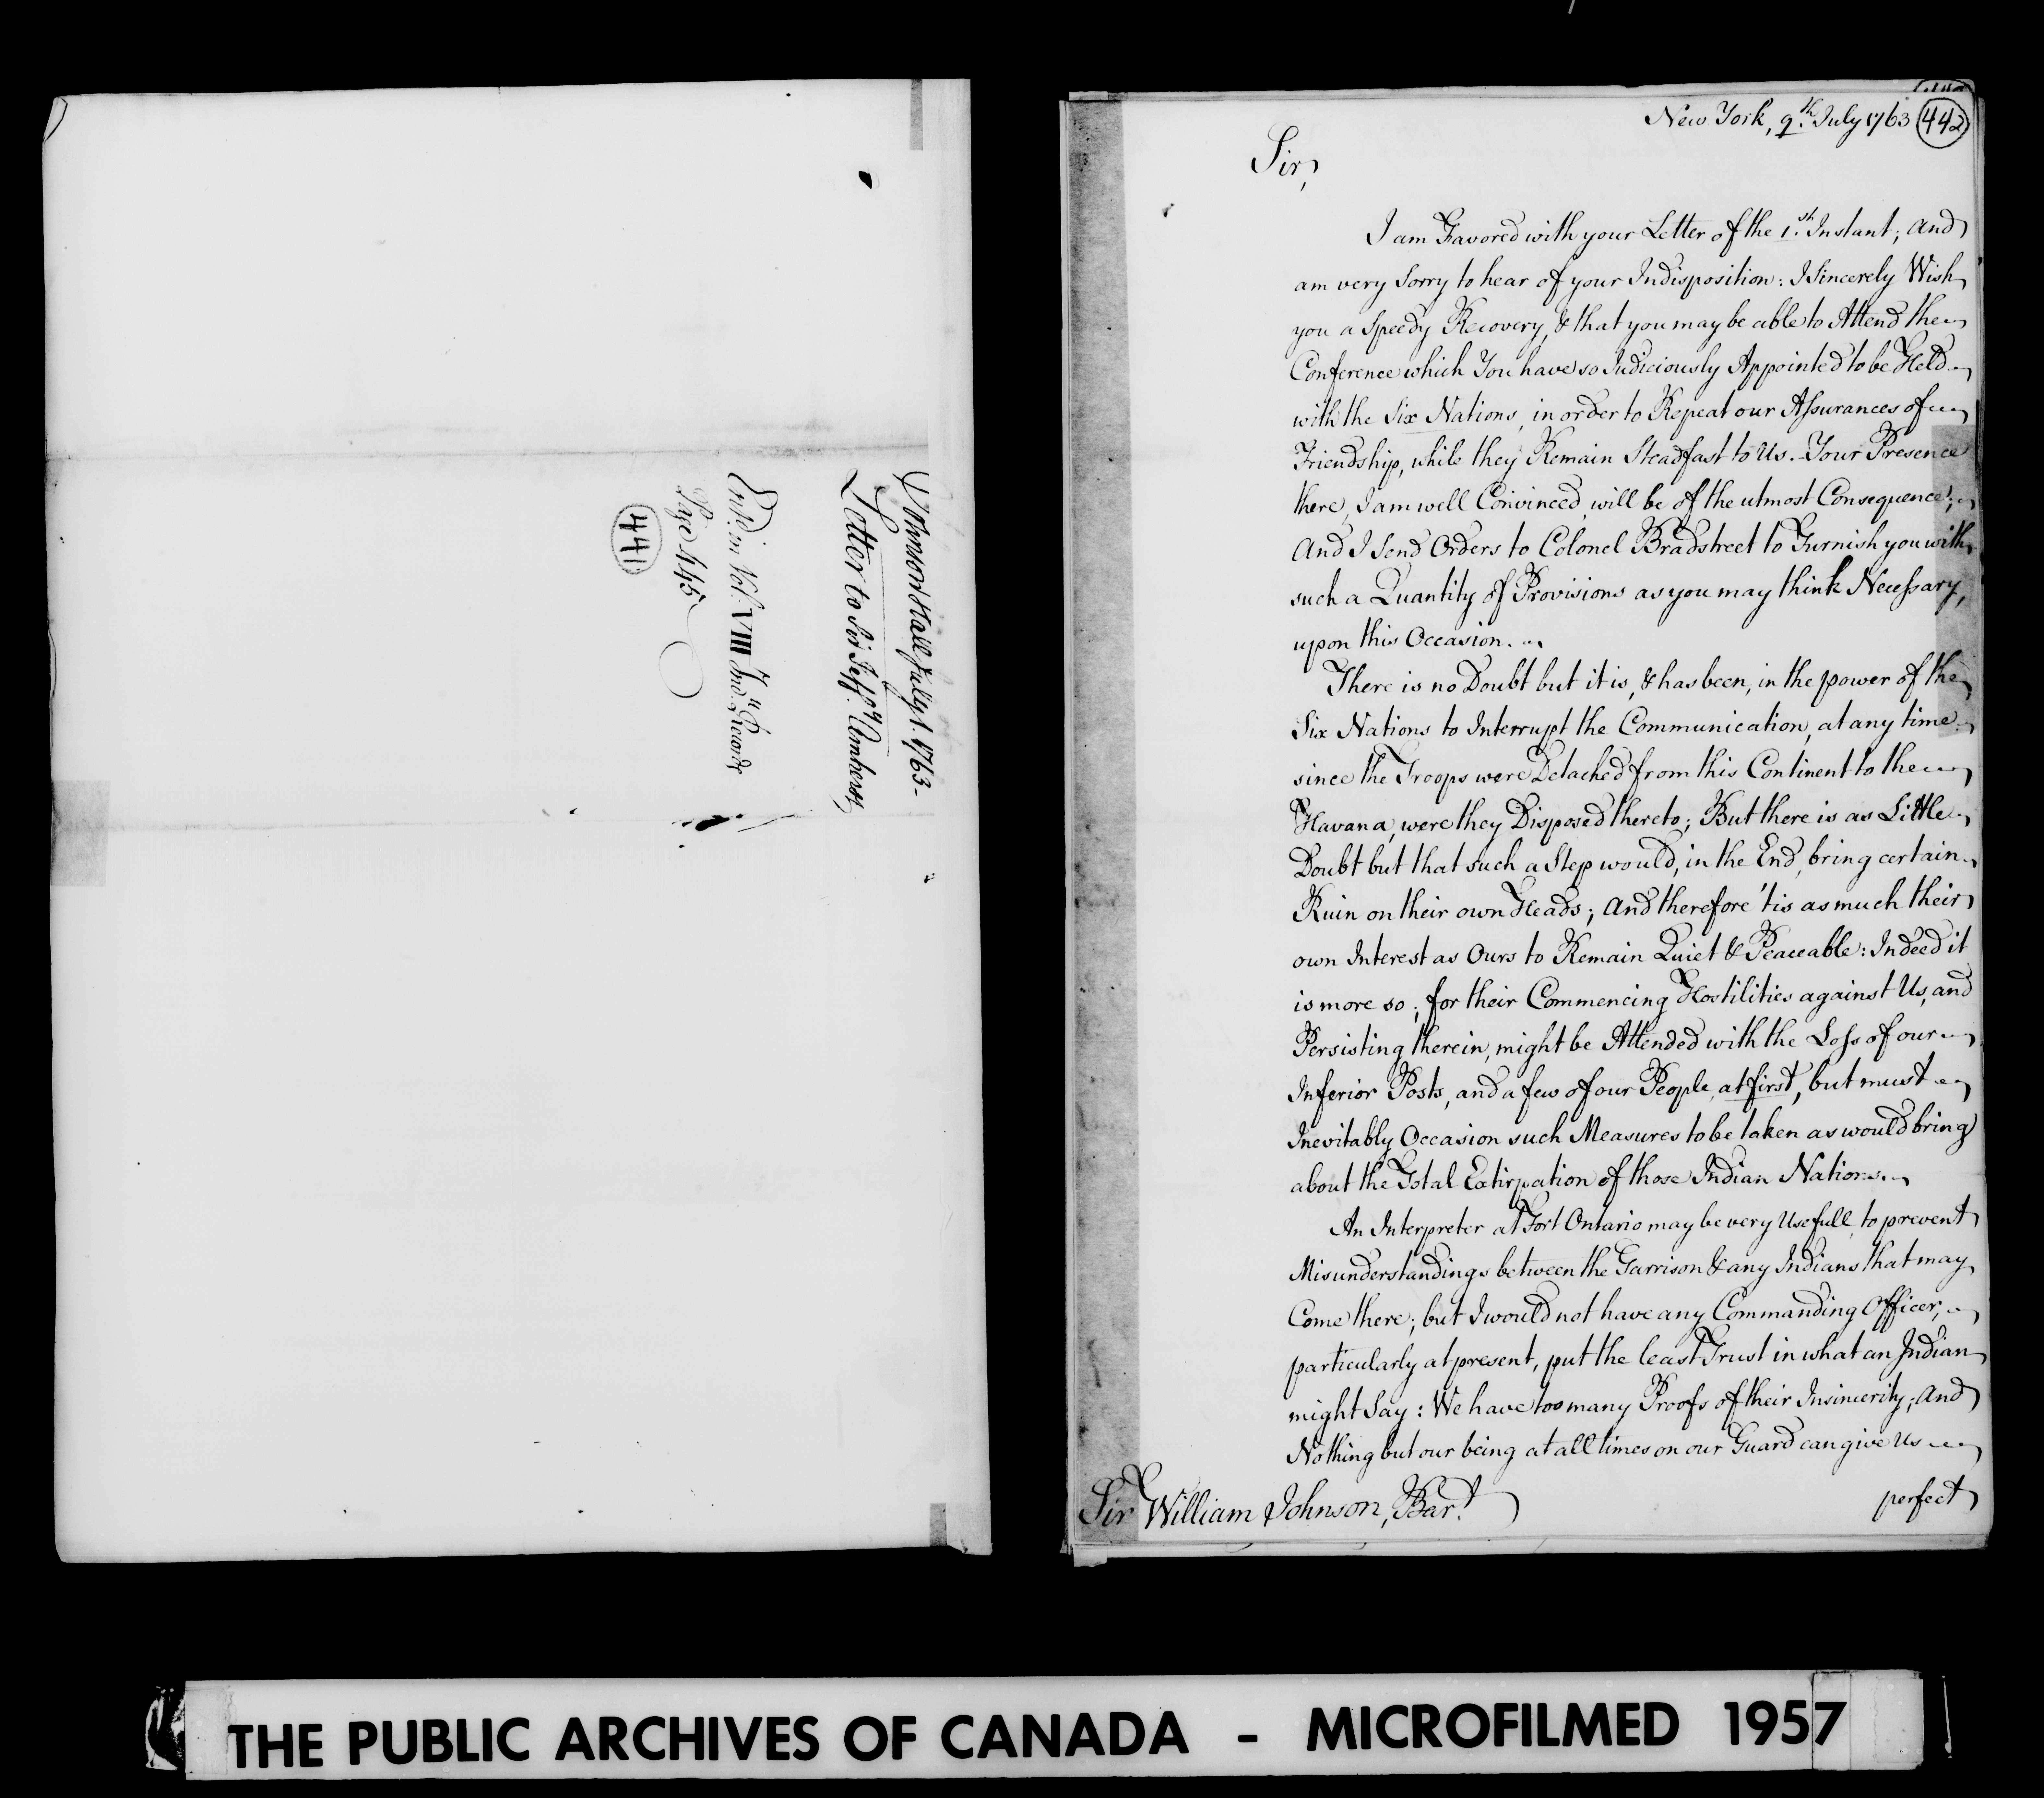 Johnson Hall July 1. 1763-
Letter to Sir Jeffry. Amherst
Entd. in Vol. VIII Indn. Records
Page 445
441
New York, 9th. July 1763
442
Sir,
I am Favored with your Letter of the 1st. Instant; and
am very Sorry to hear of your Indisposition: I Sincerely Wish
you a Speedy Recovery, & that you may be able to Attend the
Conference which You have so Judiciously Appointed to be Held
with the Six Nations, in order to Repeat our Assurances of
Friendship, while they Remain Steadfast to Us. - Your Presence
there, I am well Convinced, will be of the utmost Consequence;
And I Send Orders to Colonel Bradstreet to Furnish you with
such a Quantity of Provisions as you may think Necessary,
upon this Occasion.
There is no Doubt but it is, & has been, in the power of the
Six Nations to Interrupt the Communication, at any time
since the Troops were Detached from this Continent to the
Havana, were they Disposed thereto; But there is as Little
Doubt but that such a Step would, in the End, bring certain
Ruin on their own Heads; And therefore 'tis as much their
own Interest as Ours to Remain Quiet & Peaceable: Indeed it
is more so; for their Commencing Hostilities against Us, and
Persisting therein, might be Attended with the Loss of our
Inferior Posts, and a few of our People, at first, but must
Inevitably Occasion such Measures to be taken as would bring
about the Total Extirpation of those Indian Nations.
An Interpreter at Fort Ontario may be very Usefull, to prevent
Misunderstandings between the Garrison & any Indians that may
Come there; but I would not have any Commanding Officer,
particularly at present, put the least Trust in what an Indian
might Say: We have too many Proofs of their Insincerity; And
Nothing but our being at all times on our Guard can give Us
perfect
Sir William Johnson, Bart.
THE PUBLIC ARCHIVES OF CANADA - MICROFILMED 1957